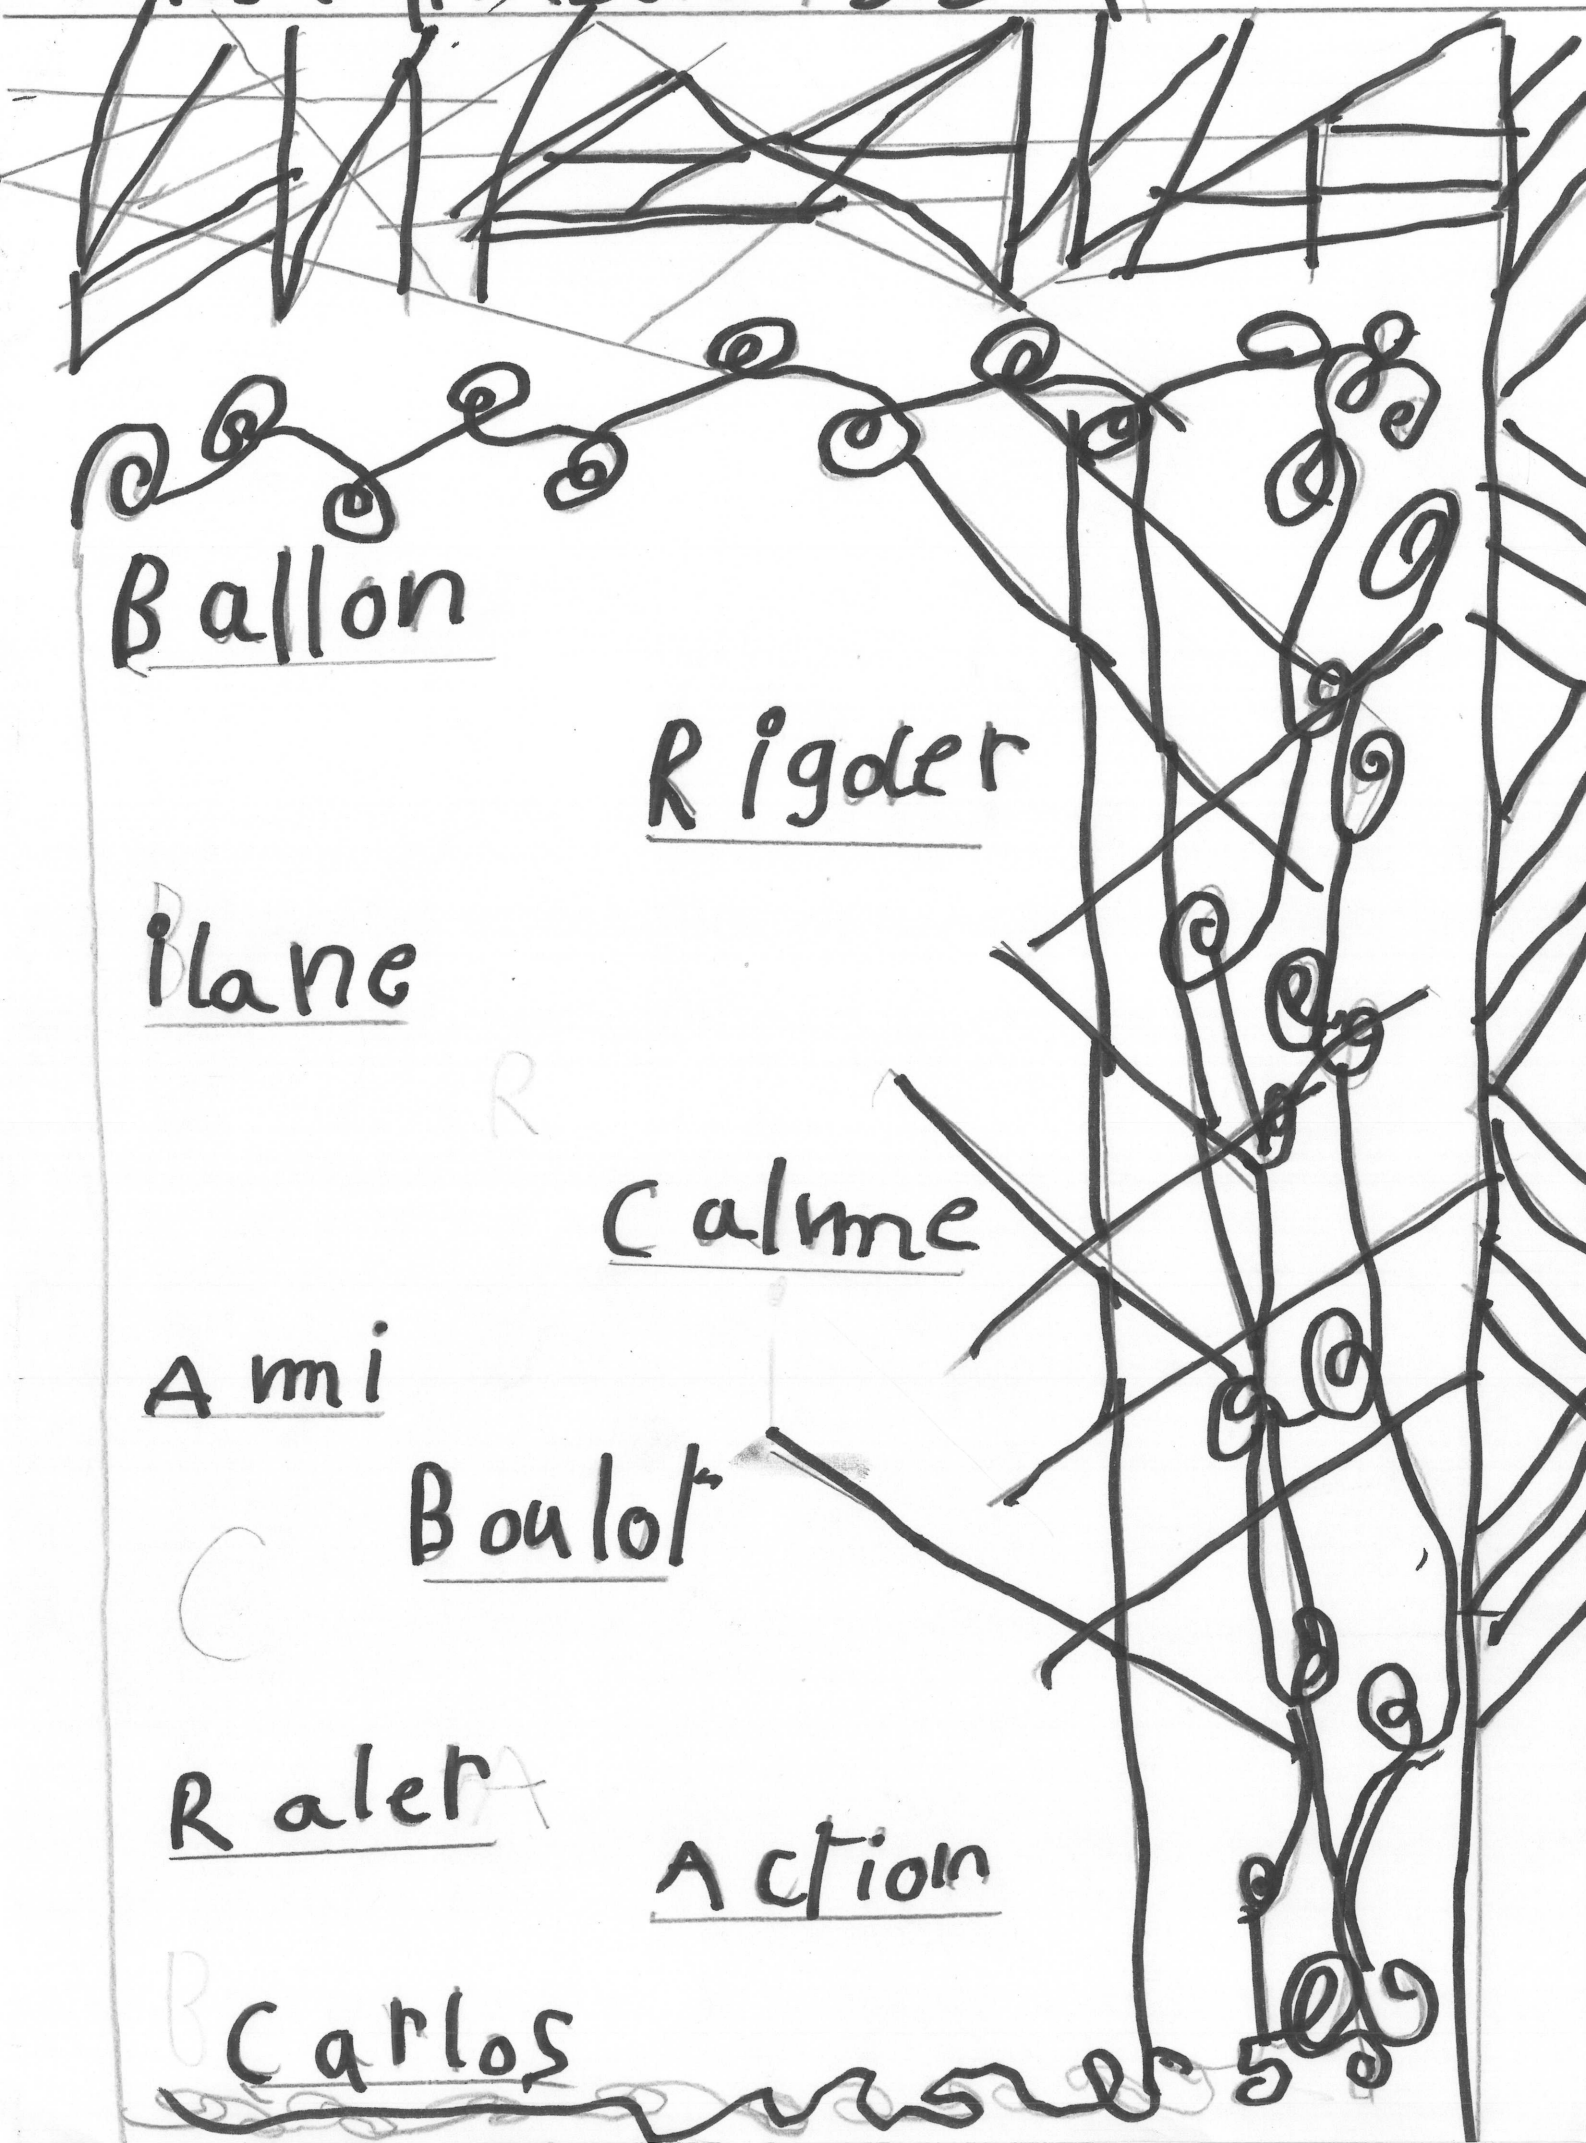 Ballon
Rigoler
ilane
R
Calme
Ami
Boulot
C
Raler
A
Action
B
Carlos